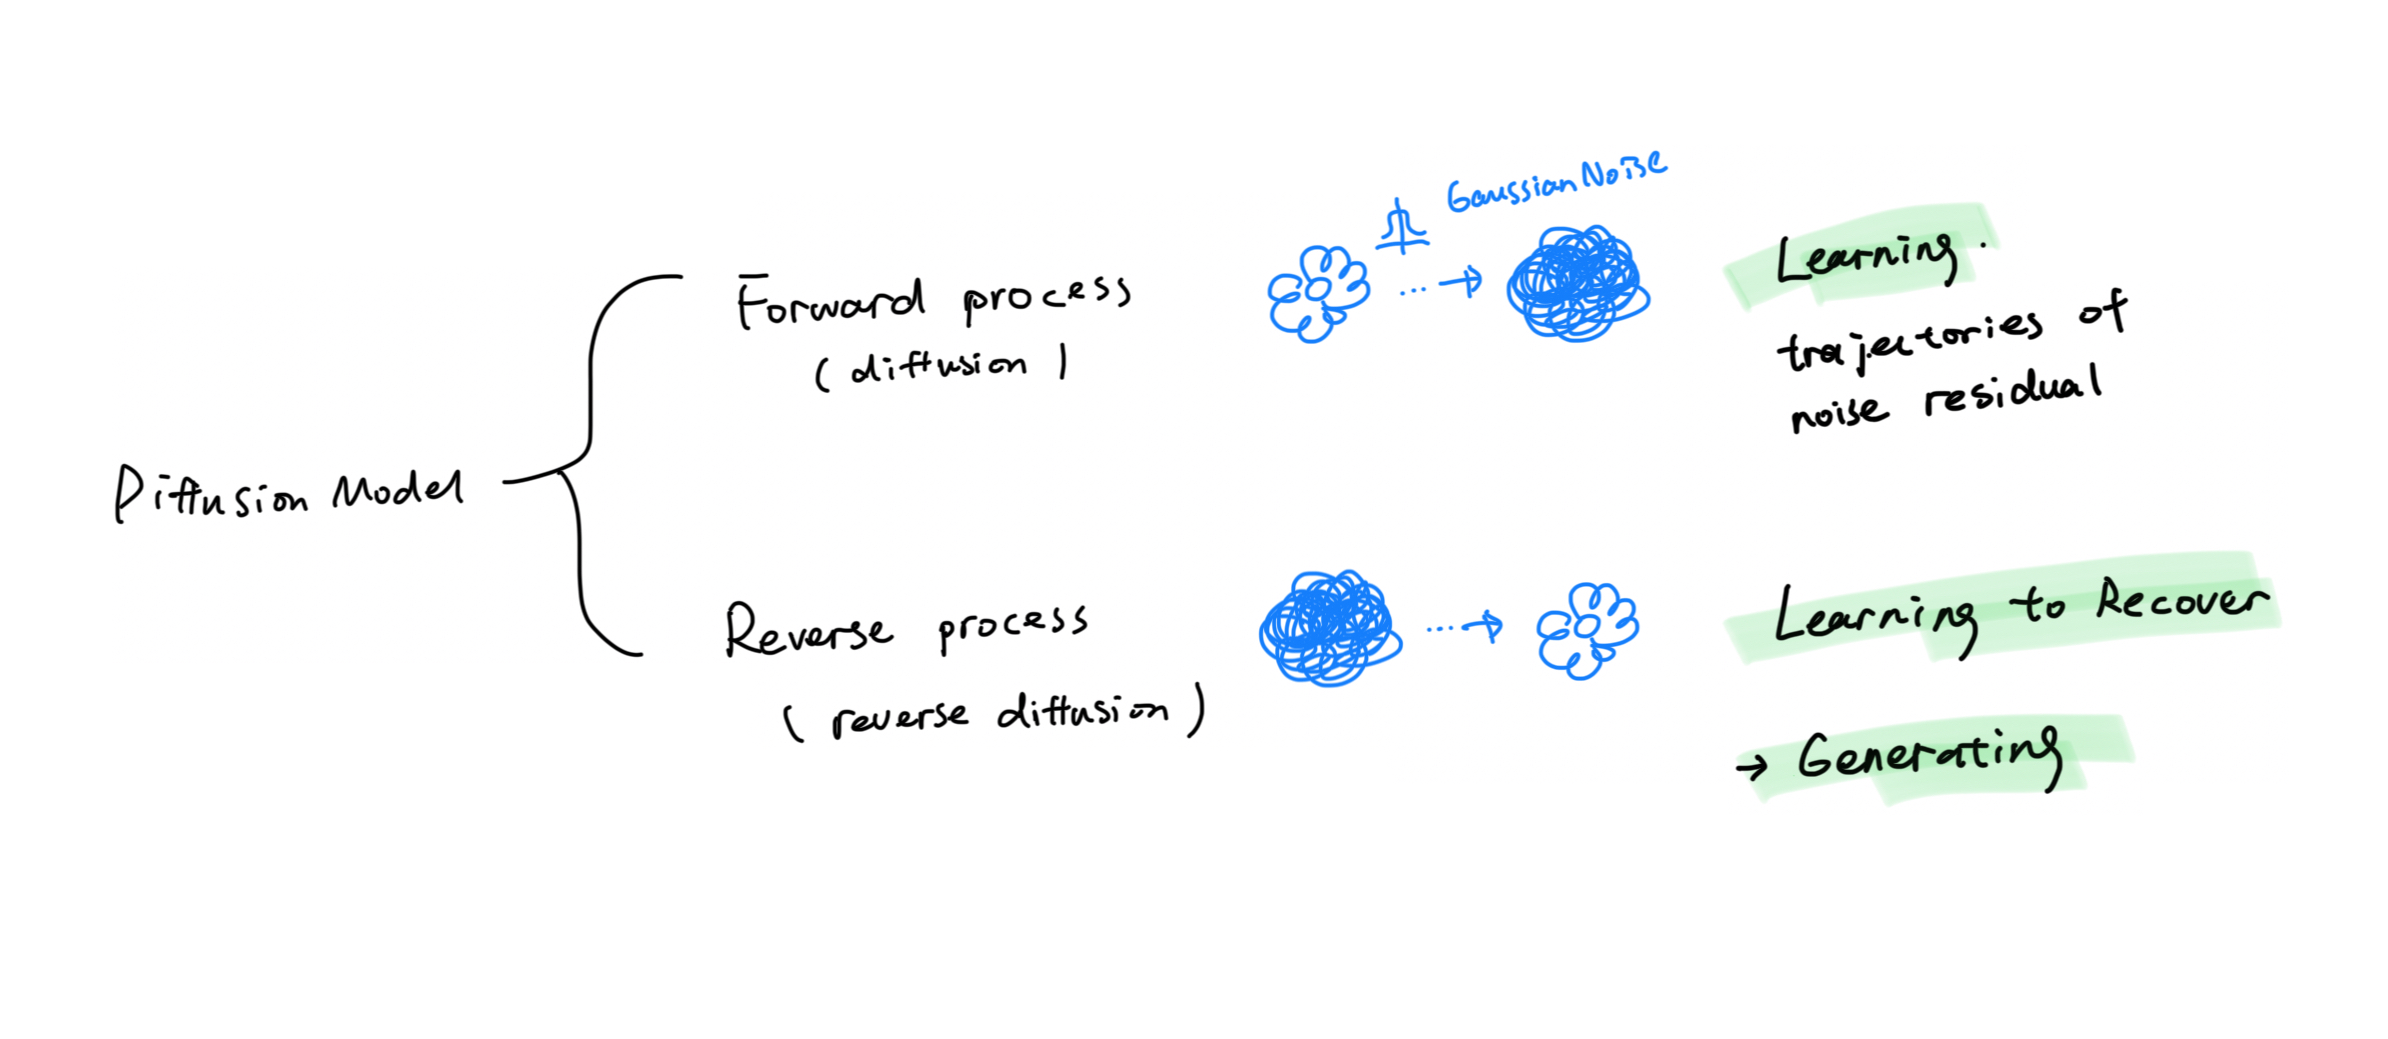 Diffusion Model
Forward process
(diffusion)
Gaussian Noise
Learning.
trajectories of
noise residual
Reverse process
(reverse diffusion)
Learning to Recover
→ Generating